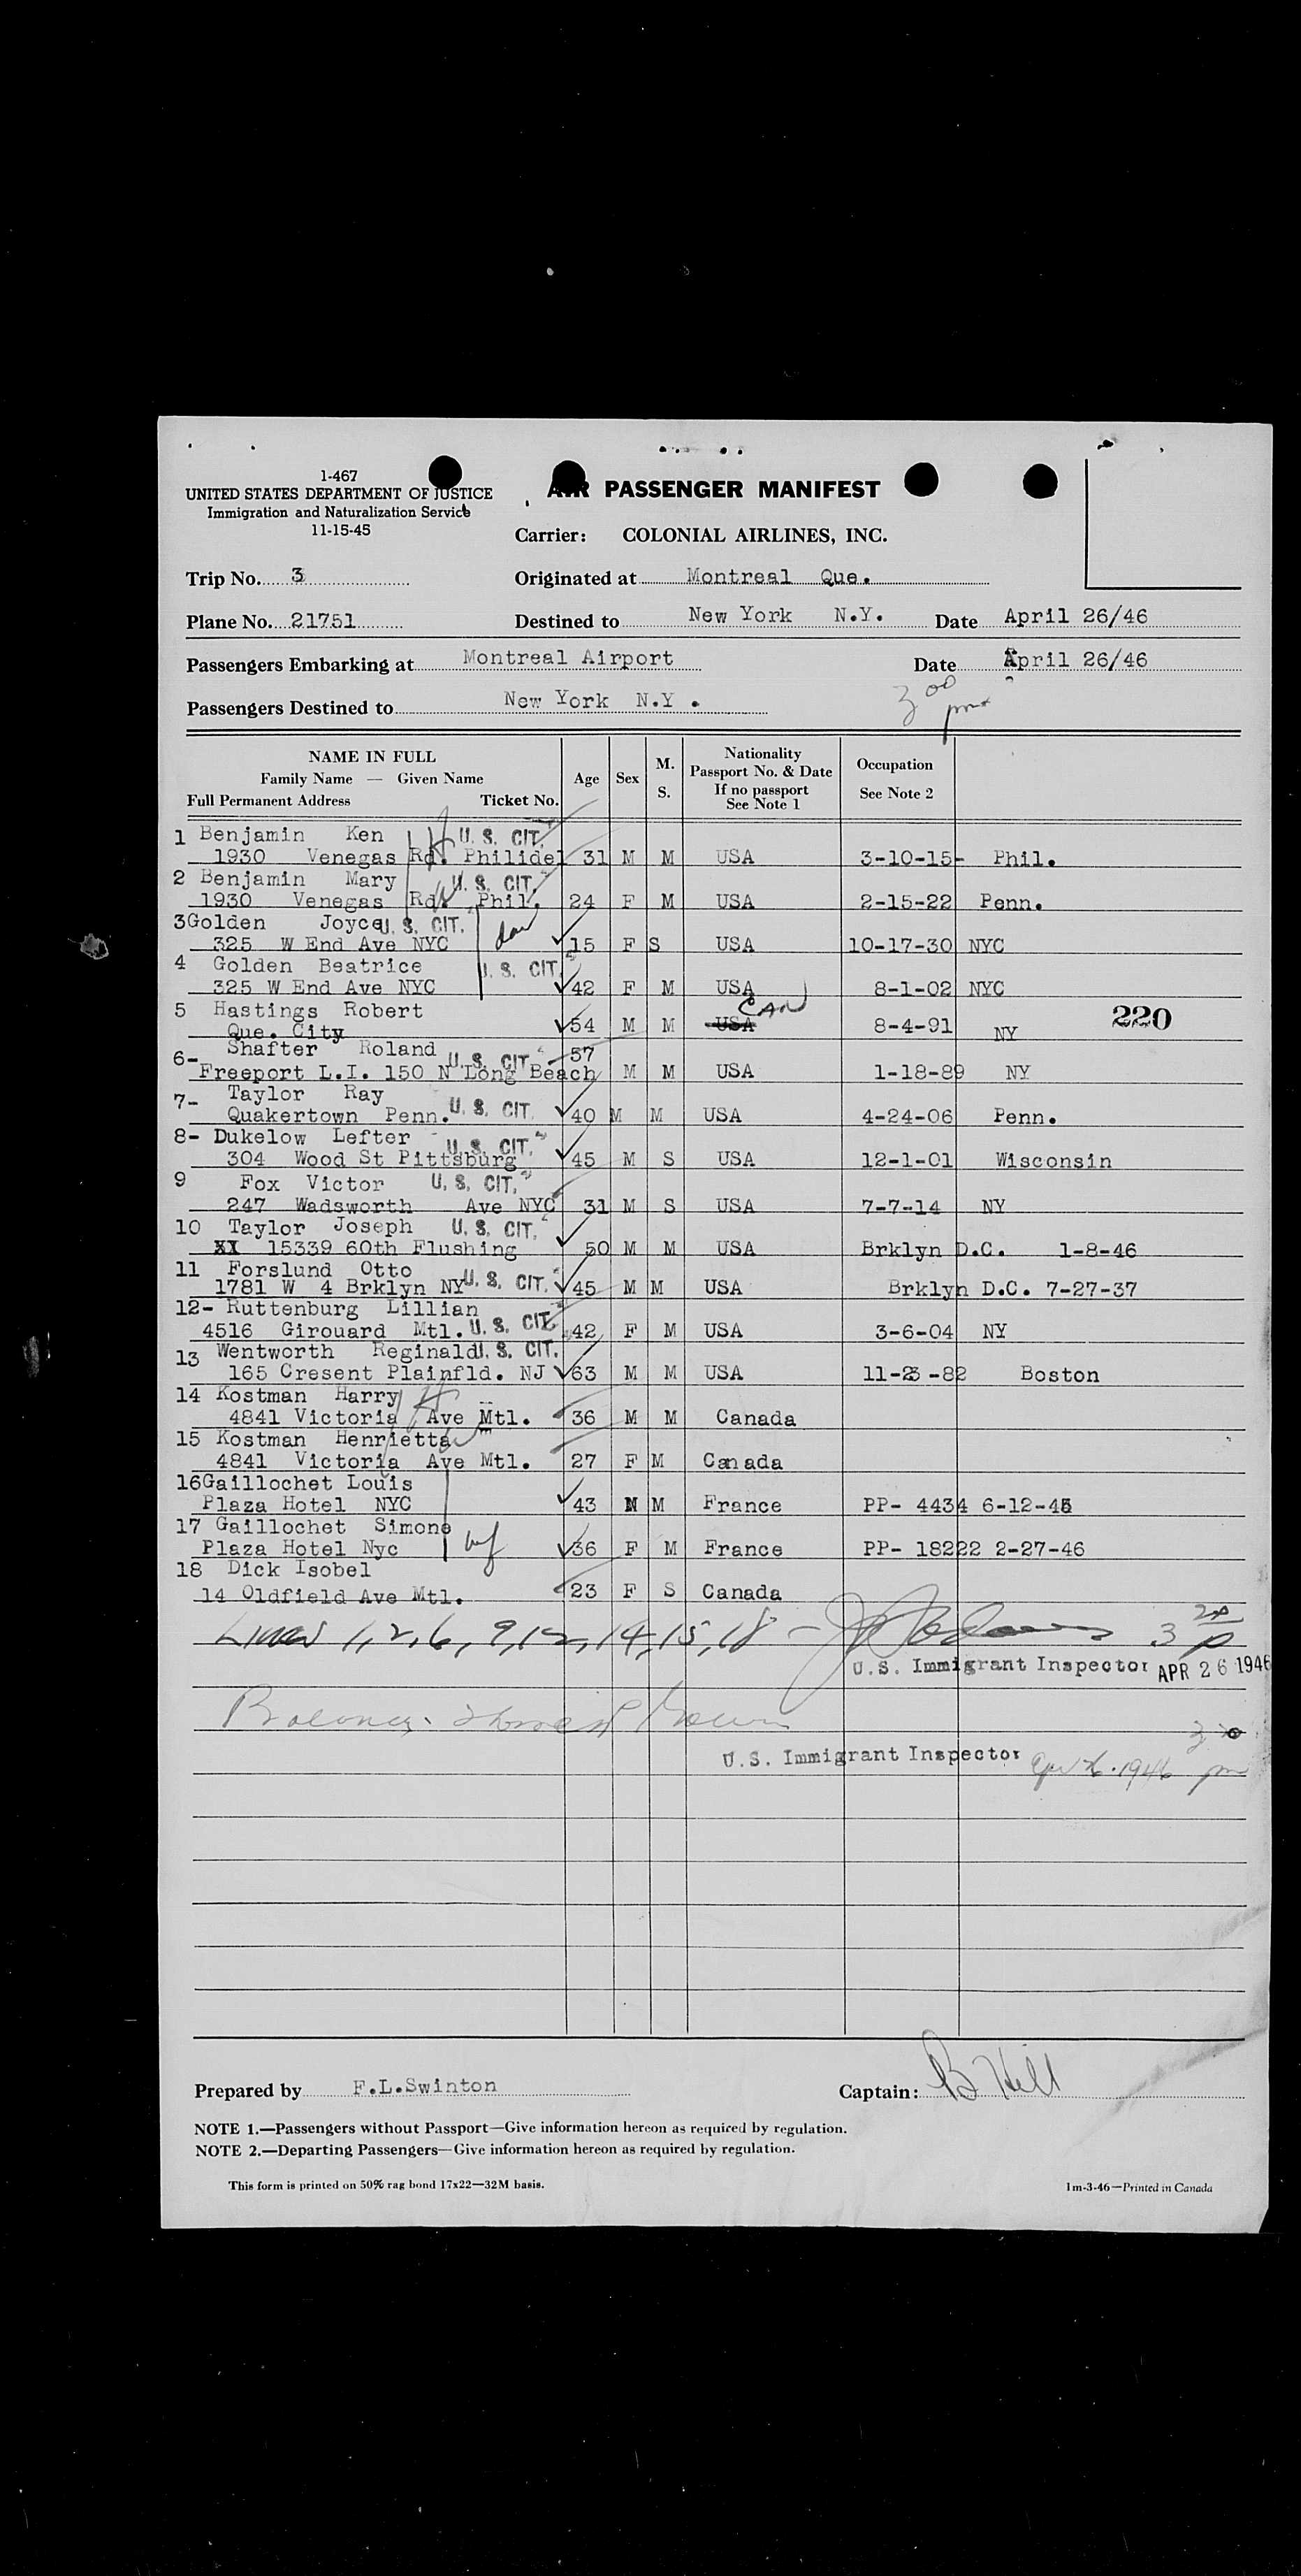 1-467
UNITED STATES DEPARTMENT OF JUSTICE
Immigration and Naturalization Service
11-15-45
AIR PASSENGER MANIFEST
Carrier: COLONIAL AIRLINES, INC.
Trip No. 3 Originated at Montreal Que.
Plane No. 21751 Destined to New York N.Y. Date April 26/46
Passengers Embarking at Montreal Airport Date April 26/46
Passengers Destined to New York N.Y .
3 00
pm
NAME IN FULL
Family Name — Given Name
Full Permanent Address Ticket No.
Age Sex M. S.
Nationality
Passport No. & Date
If no passport
See Note 1
Occupation
See Note 2
1 Benjamin Ken U. S. CIT.
1930 Venegas Rd. Philidel 31 M M USA 3-10-15- Phil.
2 Benjamin Mary U. S. CIT.
1930 Venegas Rd. Phil. 24 F M USA 2-15-22 Penn.
3Golden Joyce U. S. CIT.
325 W End Ave NYC 15 F S USA 10-17-30 NYC
4 Golden Beatrice U. S. CIT.
325 W End Ave NYC 42 F M USA 8-1-02 NYC
5 Hastings Robert CAN
Que. City 54 M M USA 8-4-91 NY 220
6- Shafter Roland U. S. CIT. 57
Freeport L.I. 150 N Long Beach M M USA 1-18-89 NY
7- Taylor Ray U. S. CIT.
Quakertown Penn. 40 M M USA 4-24-06 Penn.
8- Dukelow Lefter U. S. CIT.
304 Wood St Pittsburg 45 M S USA 12-1-01 Wisconsin
9 Fox Victor U. S. CIT.
247 Wadsworth Ave NYC 31 M S USA 7-7-14 NY
10 Taylor Joseph U. S. CIT.
XX 15339 60th Flushing 50 M M USA Brklyn D.C. 1-8-46
11 Forslund Otto
1781 W 4 Brklyn NY U. S. CIT. 45 M M USA Brklyn D.C. 7-27-37
12- Ruttenburg Lillian
4516 Girouard Mtl. U. S. CIT. 42 F M USA 3-6-04 NY
13 Wentworth Reginald U. S. CIT.
165 Cresent Plainfld. NJ 63 M M USA 11-23-82 Boston
14 Kostman Harry
4841 Victoria Ave Mtl. 36 M M Canada
15 Kostman Henrietta
4841 Victoria Ave Mtl. 27 F M Canada
16Gaillochet Louis
Plaza Hotel NYC 43 M M France PP- 4434 6-12-45
17 Gaillochet Simone
Plaza Hotel Nyc 36 F M France PP- 18222 2-27-46
18 Dick Isobel
14 Oldfield Ave Mtl. 23 F S Canada
Lines 1, 2, 6, 9, 12, 14, 15, 18 - 3 20 p
U.S. Immigrant Inspector APR 26 1946
U.S. Immigrant Inspector Apr 26. 1946 pm
Prepared by F.L.Swinton Captain: B Hill
NOTE 1.—Passengers without Passport—Give information hereon as required by regulation.
NOTE 2.—Departing Passengers—Give information hereon as required by regulation.
This form is printed on 50% rag bond 17x22—32M basis. 1m-3-46—Printed in Canada